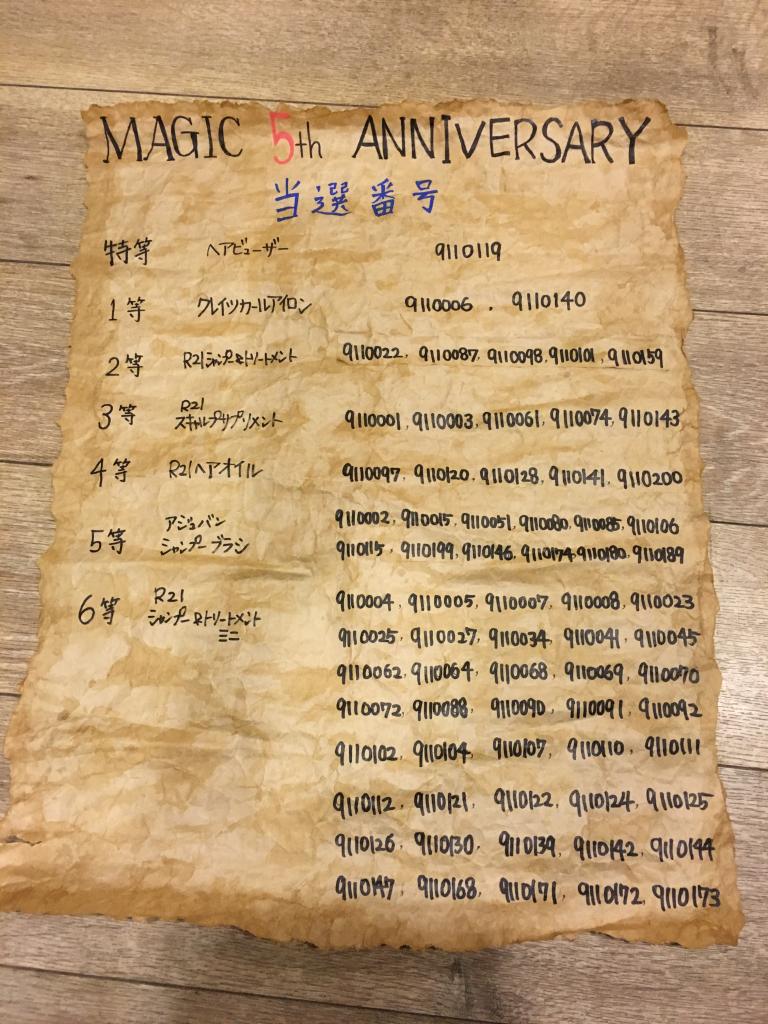 MAGIC 5th ANNIVERSARY
当選番号
特等 ヘアビューザー 9110119
1等 クレイツカールアイロン 9110006 . 9110140
2等 R21シャンプー&トリートメント 9110022, 9110087, 9110098, 9110101, 9110159
3等 R21 スキャルプサプリメント 9110001, 9110003, 9110061, 9110074, 9110143
4等 R21ヘアオイル 9110097, 9110120, 9110128, 9110141, 9110200
5等 アジュバン シャンプーブラシ 9110002, 9110015, 9110051, 9110080, 9110085, 9110106
9110115, 9110199, 9110146, 9110174, 9110180, 9110189
6等 R21 シャンプー&トリートメント ミニ 9110004, 9110005, 9110007, 9110008, 9110023
9110025, 9110027, 9110034, 9110041, 9110045
9110062, 9110064, 9110068, 9110069, 9110070
9110072, 9110088, 9110090, 9110091, 9110092
9110102, 9110104, 9110107, 9110110, 9110111
9110112, 9110121, 9110122, 9110124, 9110125
9110126, 9110130, 9110139, 9110142, 9110144
9110147, 9110168, 9110171, 9110172, 9110173